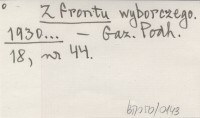 Z frontu wyborczego.
1930... — Gaz. Podh.
18, nr 44.